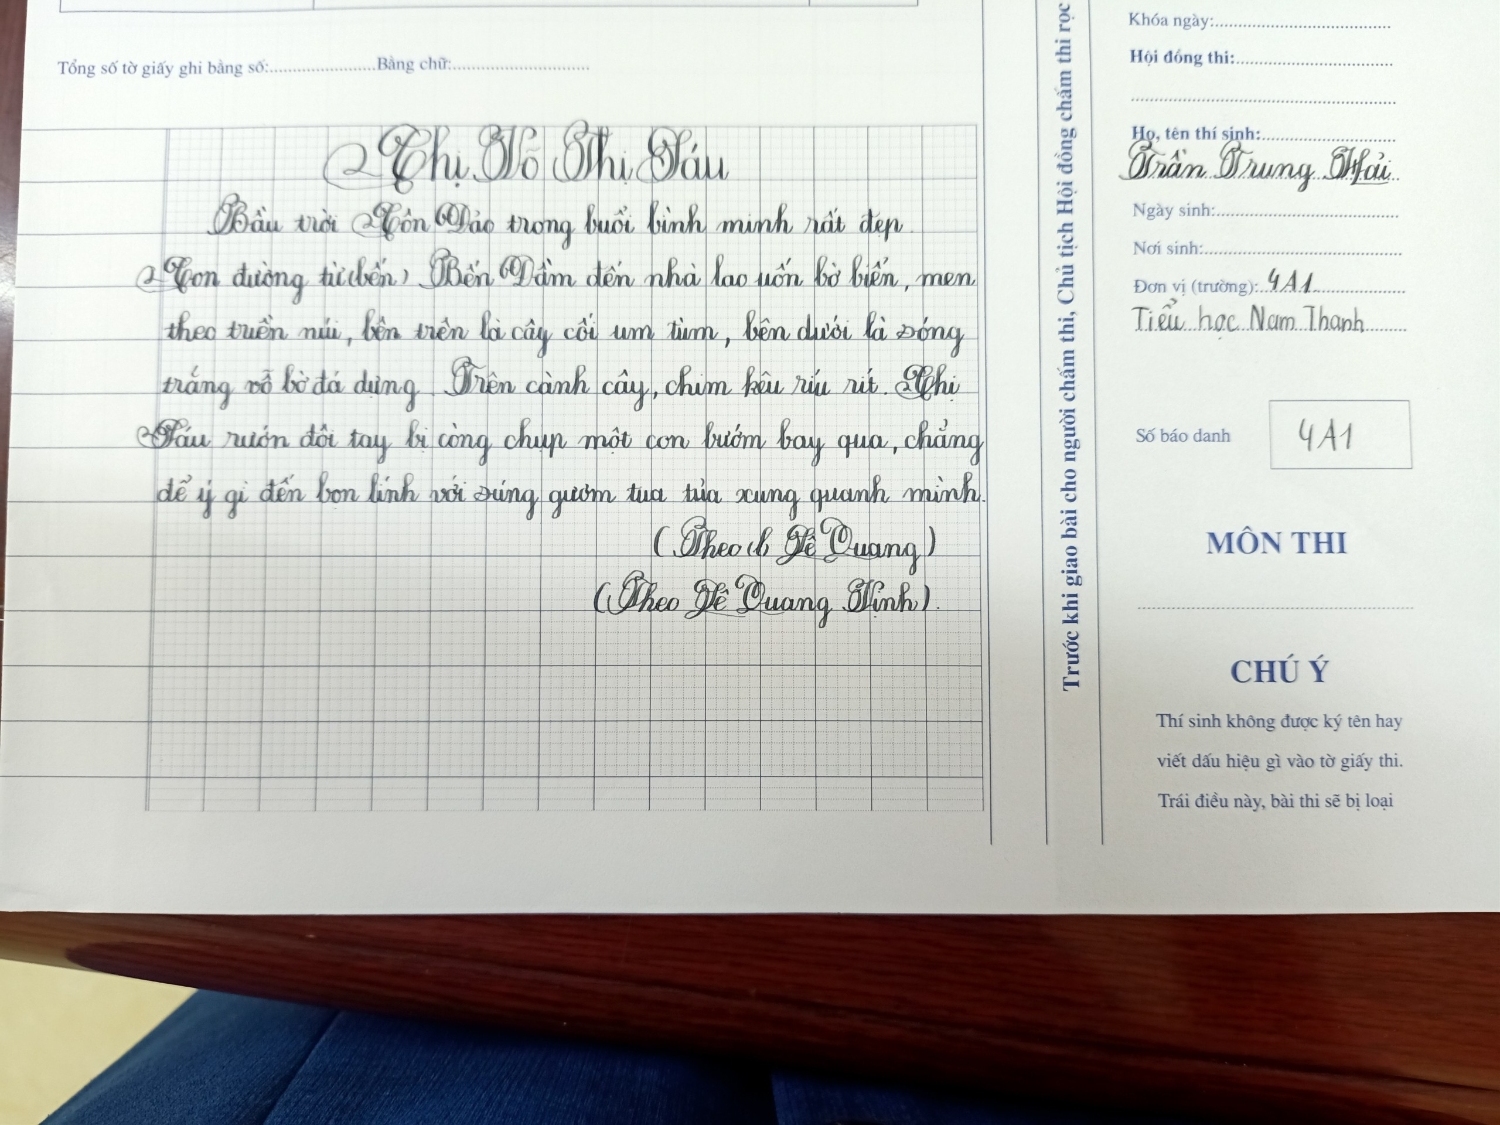 Tổng số tờ giấy ghi bằng số:........................Bằng chữ:...............................
Chị Võ Thị Sáu
Bầu trời Côn Đảo trong buổi bình minh rất đẹp.
Con đường từ (bến) Bến Đầm đến nhà lao uốn bờ biển, men
theo triền núi, bên trên là cây cối um tùm, bên dưới là sóng
trắng vỗ bờ đá dựng. Trên cành cây, chim kêu ríu rít. Chị
Sáu rướn đôi tay bị còng chụp một con bướm bay qua, chẳng
để ý gì đến bọn lính với súng gươm tua tủa xung quanh mình.
(Theo Lê Quang)
(Theo Lê Quang Vịnh).
Trước khi giao bài cho người chấm thi, Chủ tịch Hội đồng chấm thi rọc
Khóa ngày:........................................
Hội đồng thi:....................................
Họ, tên thí sinh:...............................
Trần Trung Hải
Ngày sinh:..........................................
Nơi sinh:.............................................
Đơn vị (trường): 4A1
Tiểu học Nam Thanh
Số báo danh
4A1
MÔN THI
CHÚ Ý
Thí sinh không được ký tên hay
viết dấu hiệu gì vào tờ giấy thi.
Trái điều này, bài thi sẽ bị loại